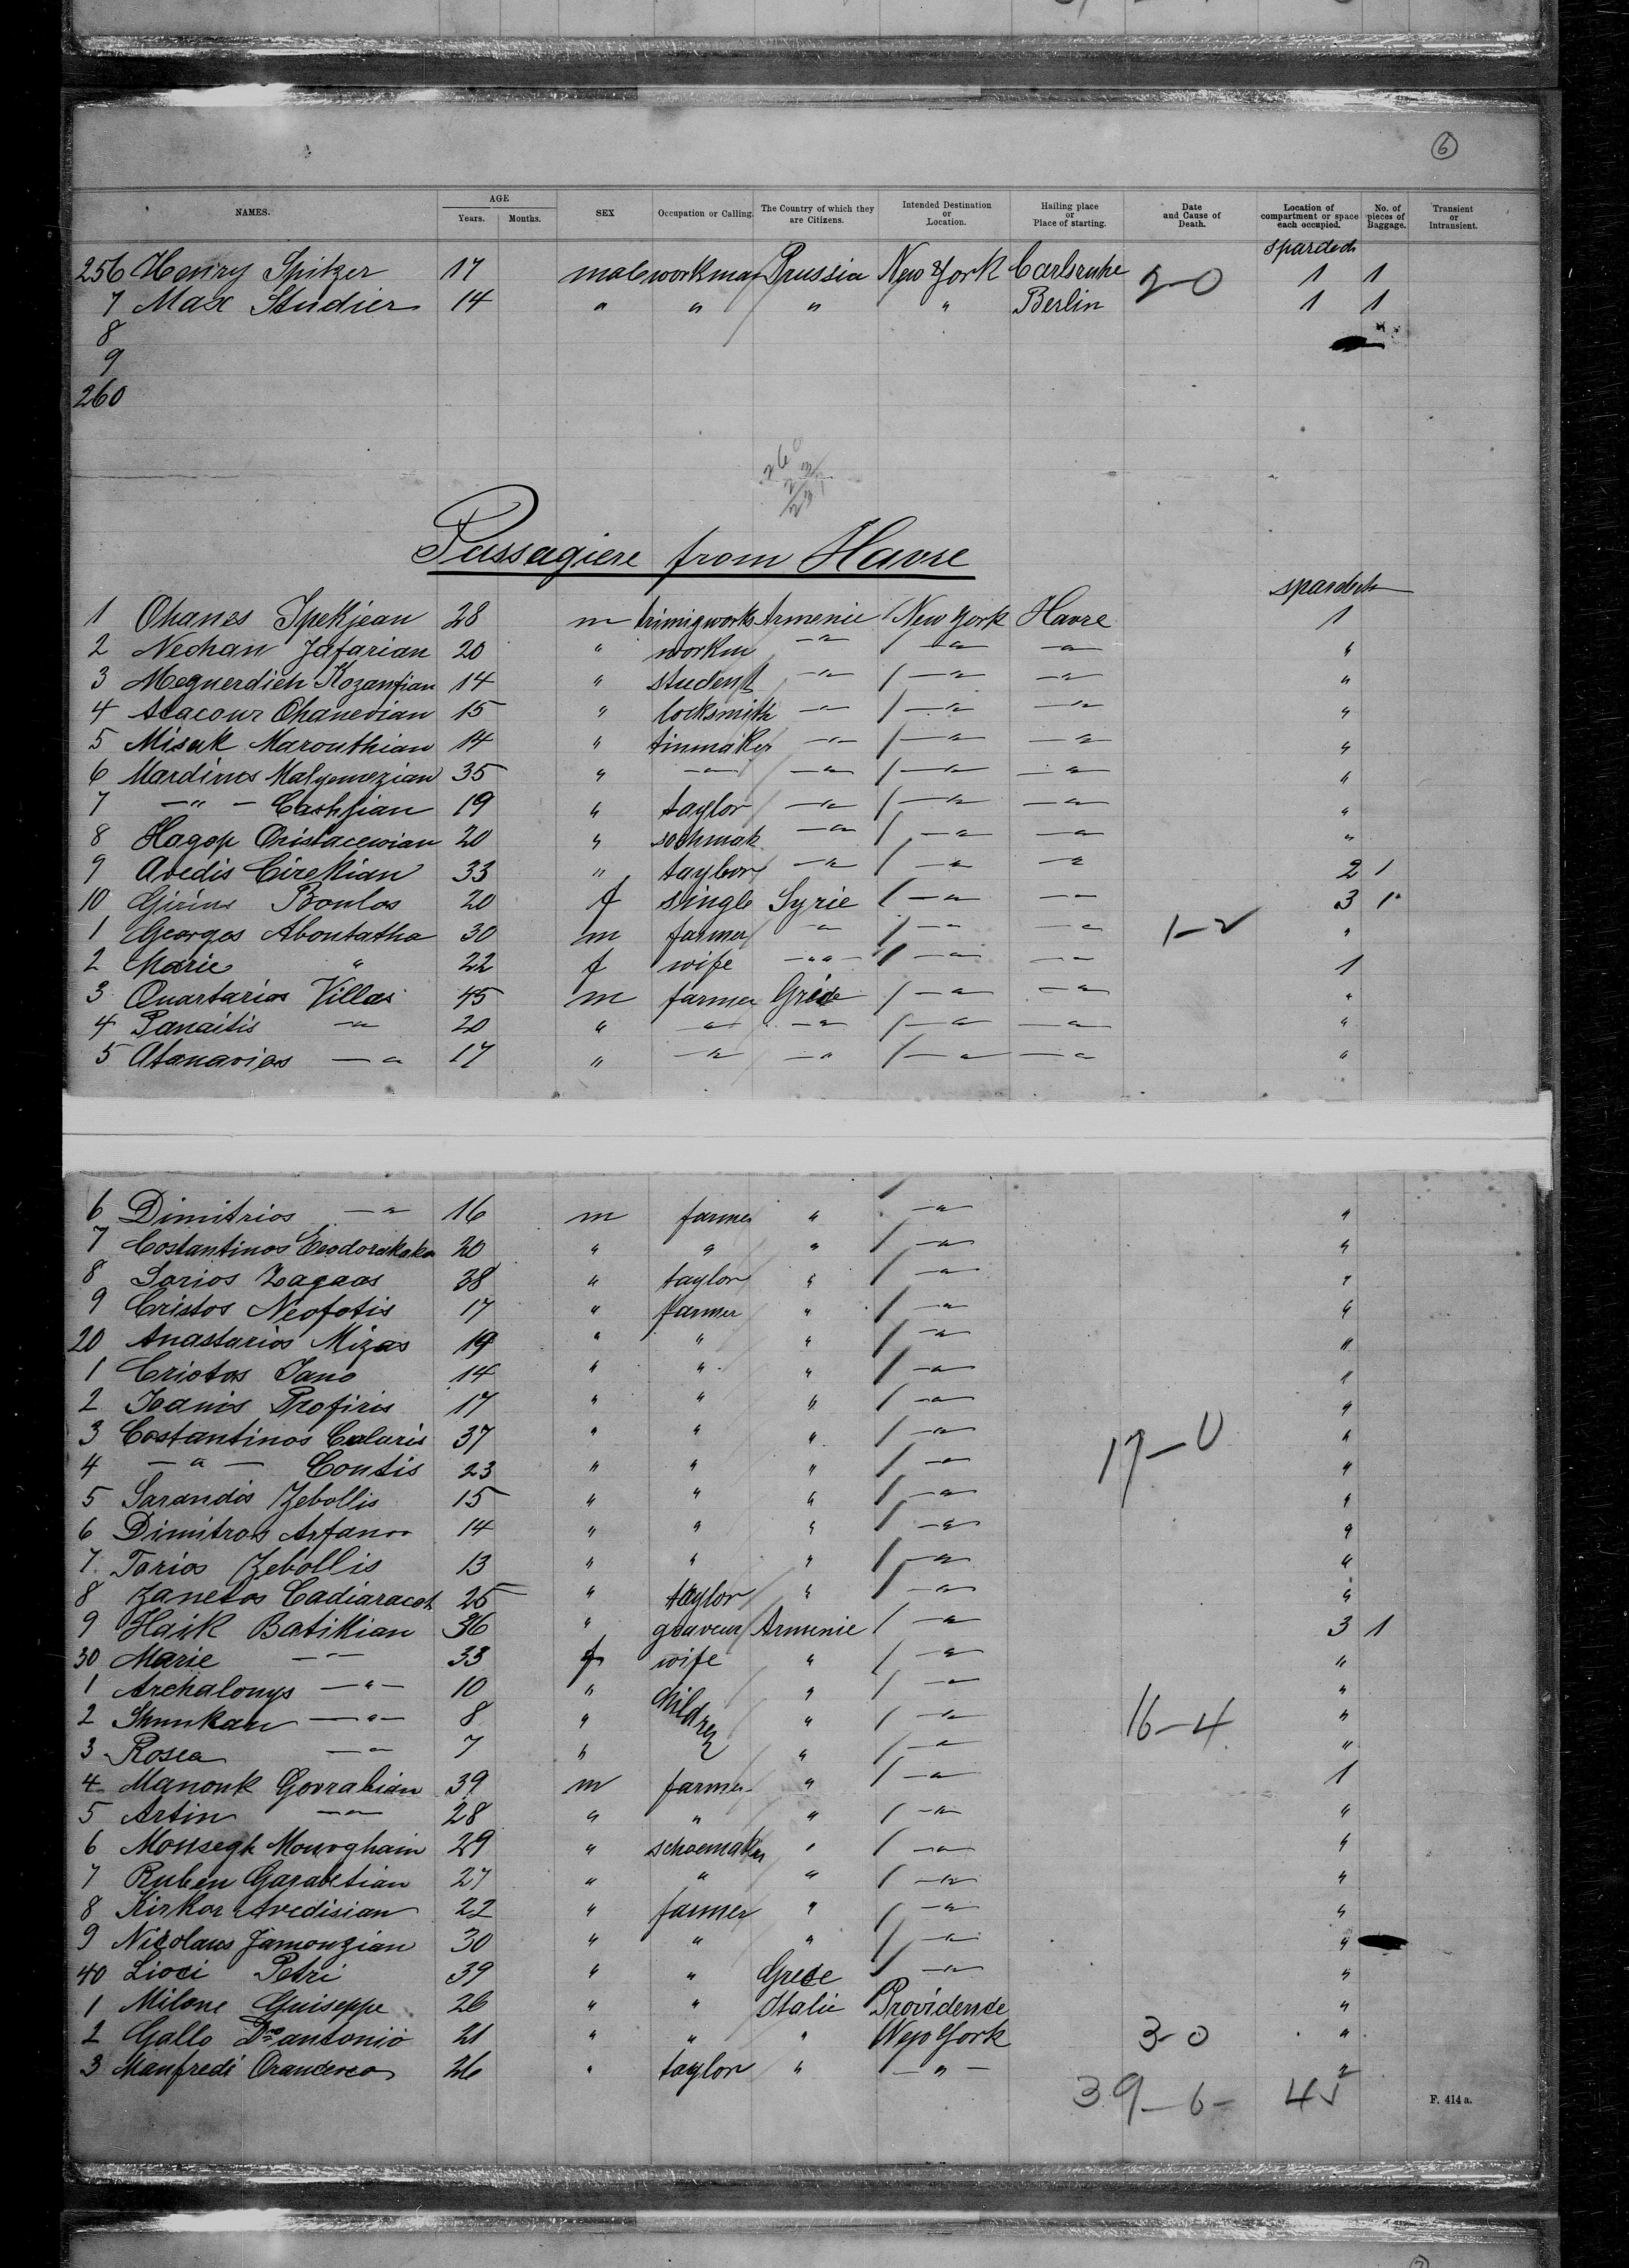 6
NAMES. AGE Years. Months. SEX Occupation or Calling. The Country of which they are Citizens. Intended Destination or Location. Hailing place or Place of starting. Date and Cause of Death. Location of compartment or space each occupied. No. of pieces of Baggage. Transient or Intransient.
spardeck
256 Henry Spitzer 17 male workman Prussia New York Carlsruhe 2-0 1 1
7 Max Studier 14 " " " " Berlin 1 1
8
9
260
260
Passagiere from Havre
spardeck
1 Ohanes Ipekjean 28 m Armenie New York Havre 1
2 Nechan Jafarian 20 " workm —"— —"— —"— "
3 Meguerdich Kozanjian 14 " student —"— —"— —"— "
4 Atacour Ohanedian 15 " locksmith —"— —"— —"— "
5 Misak Marouthian 14 " tinmaker —"— —"— —"— "
6 Mardiros Malyemezian 35 " —"— —"— —"— —"— "
7 —"— Cashjian 19 " taylor —"— —"— —"— "
8 Hagop 20 " sochmak —"— —"— —"— "
9 Avedis Cirekian 33 " taylor —"— —"— —"— 2 1
10 Girius Boulos 20 f single Syrie —"— —"— 3 1
1 Georges Aboutatha 30 m farmer —"— —"— —"— 1-2 "
2 Marie " 22 f wife —"— —"— —"— 1
3 Quartarios Villas 45 m farmer Grece —"— —"— "
4 Panaitis —"— 20 " —"— —"— —"— —"— "
5 Atanarios —"— 17 " —"— —"— —"— —"— "
6 Dimitrios —"— 16 m farmer " —"— "
7 Costantinos Teodorakakos 20 " " " —"— "
8 Sarios Zagaas 38 " taylor " —"— "
9 Cristos Neofotis 17 " farmer " —"— "
20 Anastarios Mizas 19 " " " —"— "
1 Cristos Jano 14 " " " —"— "
2 Joanis Profiris 17 " " " —"— "
3 Costantinos Caluris 37 " " " —"— 17-0 "
4 —"— Contis 23 " " " —"— "
5 Sarandis Zebollis 15 " " " —"— "
6 Dimitros 14 " " " —"— "
7 Tarios Zebollis 13 " " " —"— "
8 Zanetos Cadiaracot 25 " taylor " —"— "
9 Haik Batikian 36 " graveur Armenie —"— 3 1
30 Marie —"— 33 f wife " —"— "
1 Archalouys —"— 10 " children " —"— "
2 —"— 8 " " —"— 16-4 "
3 Rosea —"— 7 " " —"— "
4 Manouk Govrabian 39 m farmer " —"— 1
5 Artin —"— 28 " " " —"— "
6 Monsegh 29 " schoemaker " —"— "
7 Ruben Garabetian 27 " " " —"— "
8 Kirkor Avedisian 22 " farmer " —"— "
9 Nicolaus Jamouzian 30 " " " —"— "
40 Lioci Petri 39 " " Grece —"— "
1 Milone Guiseppe 26 " " Italie Providence "
2 Gallo Dno antonio 21 " " " New York 3-0 "
3 Manfredi 26 " taylor " —"— 2
39-6- 45
F. 414 a.